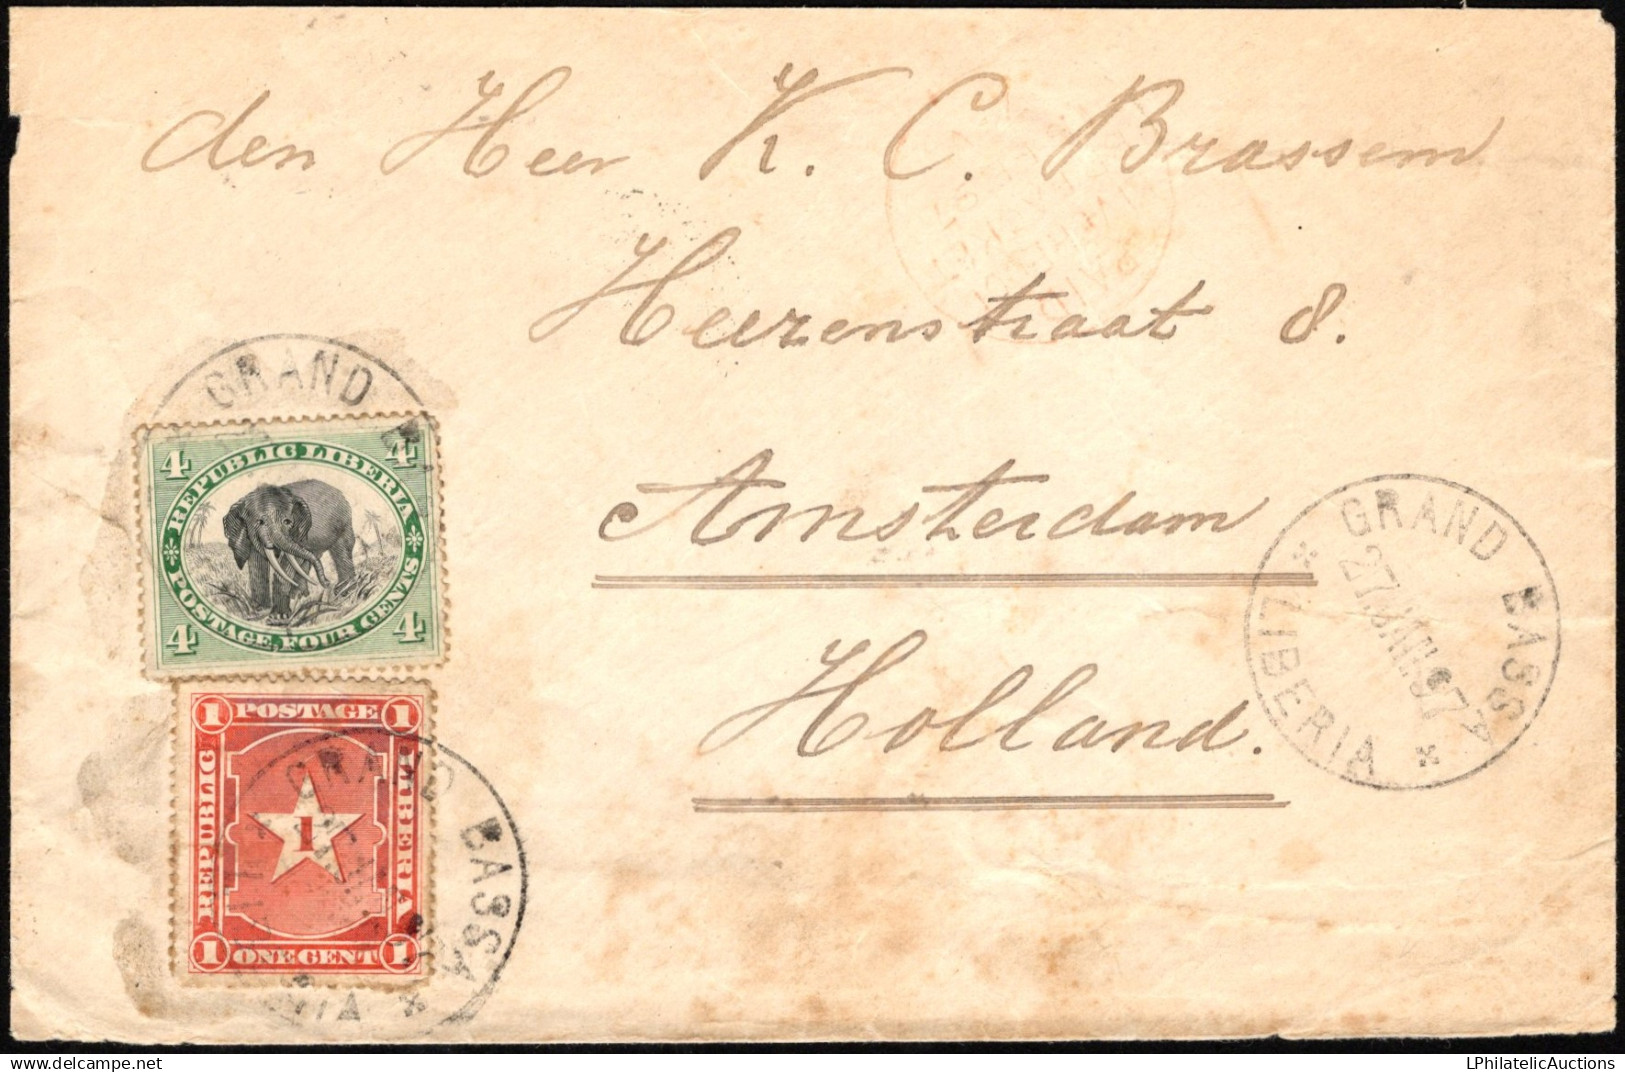 den Heer K. C. Brassem
Heerenstraat 8.
Amsterdam
Holland.
PAID
LIVERPOOL
GRAND BASSA
4 4
REPUBLIC LIBERIA
POSTAGE, FOUR CENTS
4 4
1 POSTAGE 1
REPUBLIC
LIBERIA
1
1 ONE CENT 1
GRAND BASSA
LIBERIA
GRAND BASSA
LIBERIA
LPhilatelicAuctions